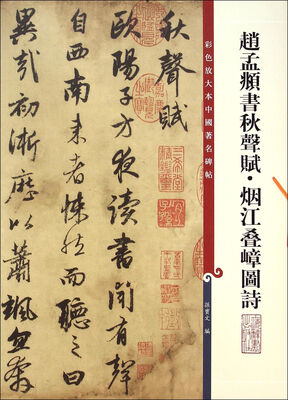 趙孟頫書秋聲賦·烟江叠嶂圖詩
彩色放大本中國著名碑帖
孫寶文 編
秋聲賦
歐陽子方夜读書聞有聲
自西南来者悚然而聽之曰
異哉初淅瀝以蕭颯忽奔
三希堂精鑑璽